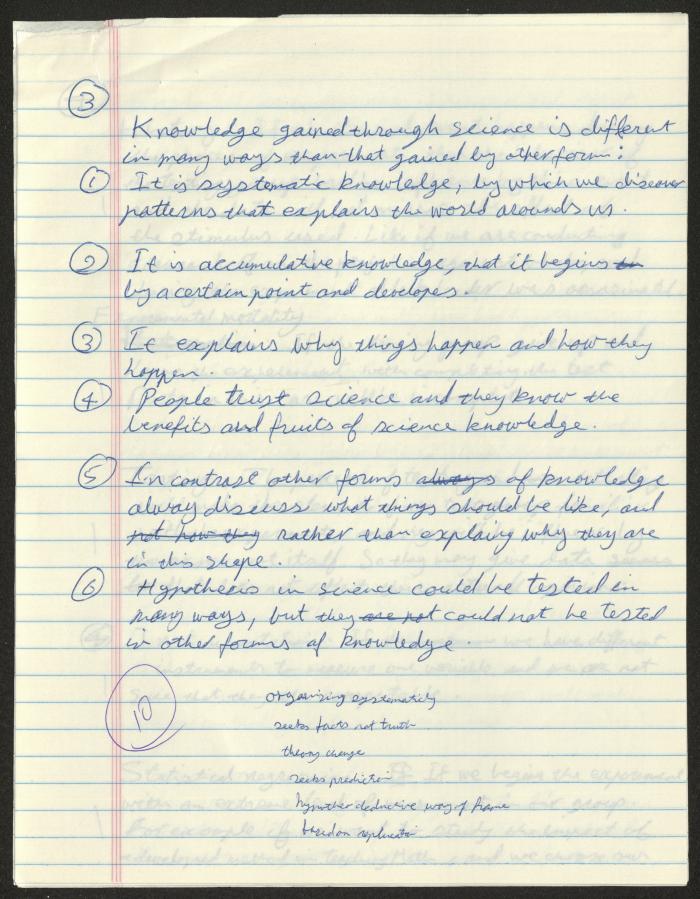 3
Knowledge gained through science is different
in many ways than that gained by other form:
1 It is systematic knowledge, by which we discover
patterns that explains the world arounds us.
2 It is accumulative knowledge, that it begins
by a certain point and developes.
3 It explains why things happen and how they
happen.
4 People trust science and they know the
benefits and fruits of science knowledge.
5 In contrast other forms always of knowledge
alway discuss what things should be like, and
not how they rather than explaing why they are
in this shape.
6 Hypothesis in science could be tested in
many ways, but they are not could not be tested
in other forms of knowledge.
10
organizing systematicly
seeks facts not truth
theory change
seeks prediction
deductive way of
based on replication